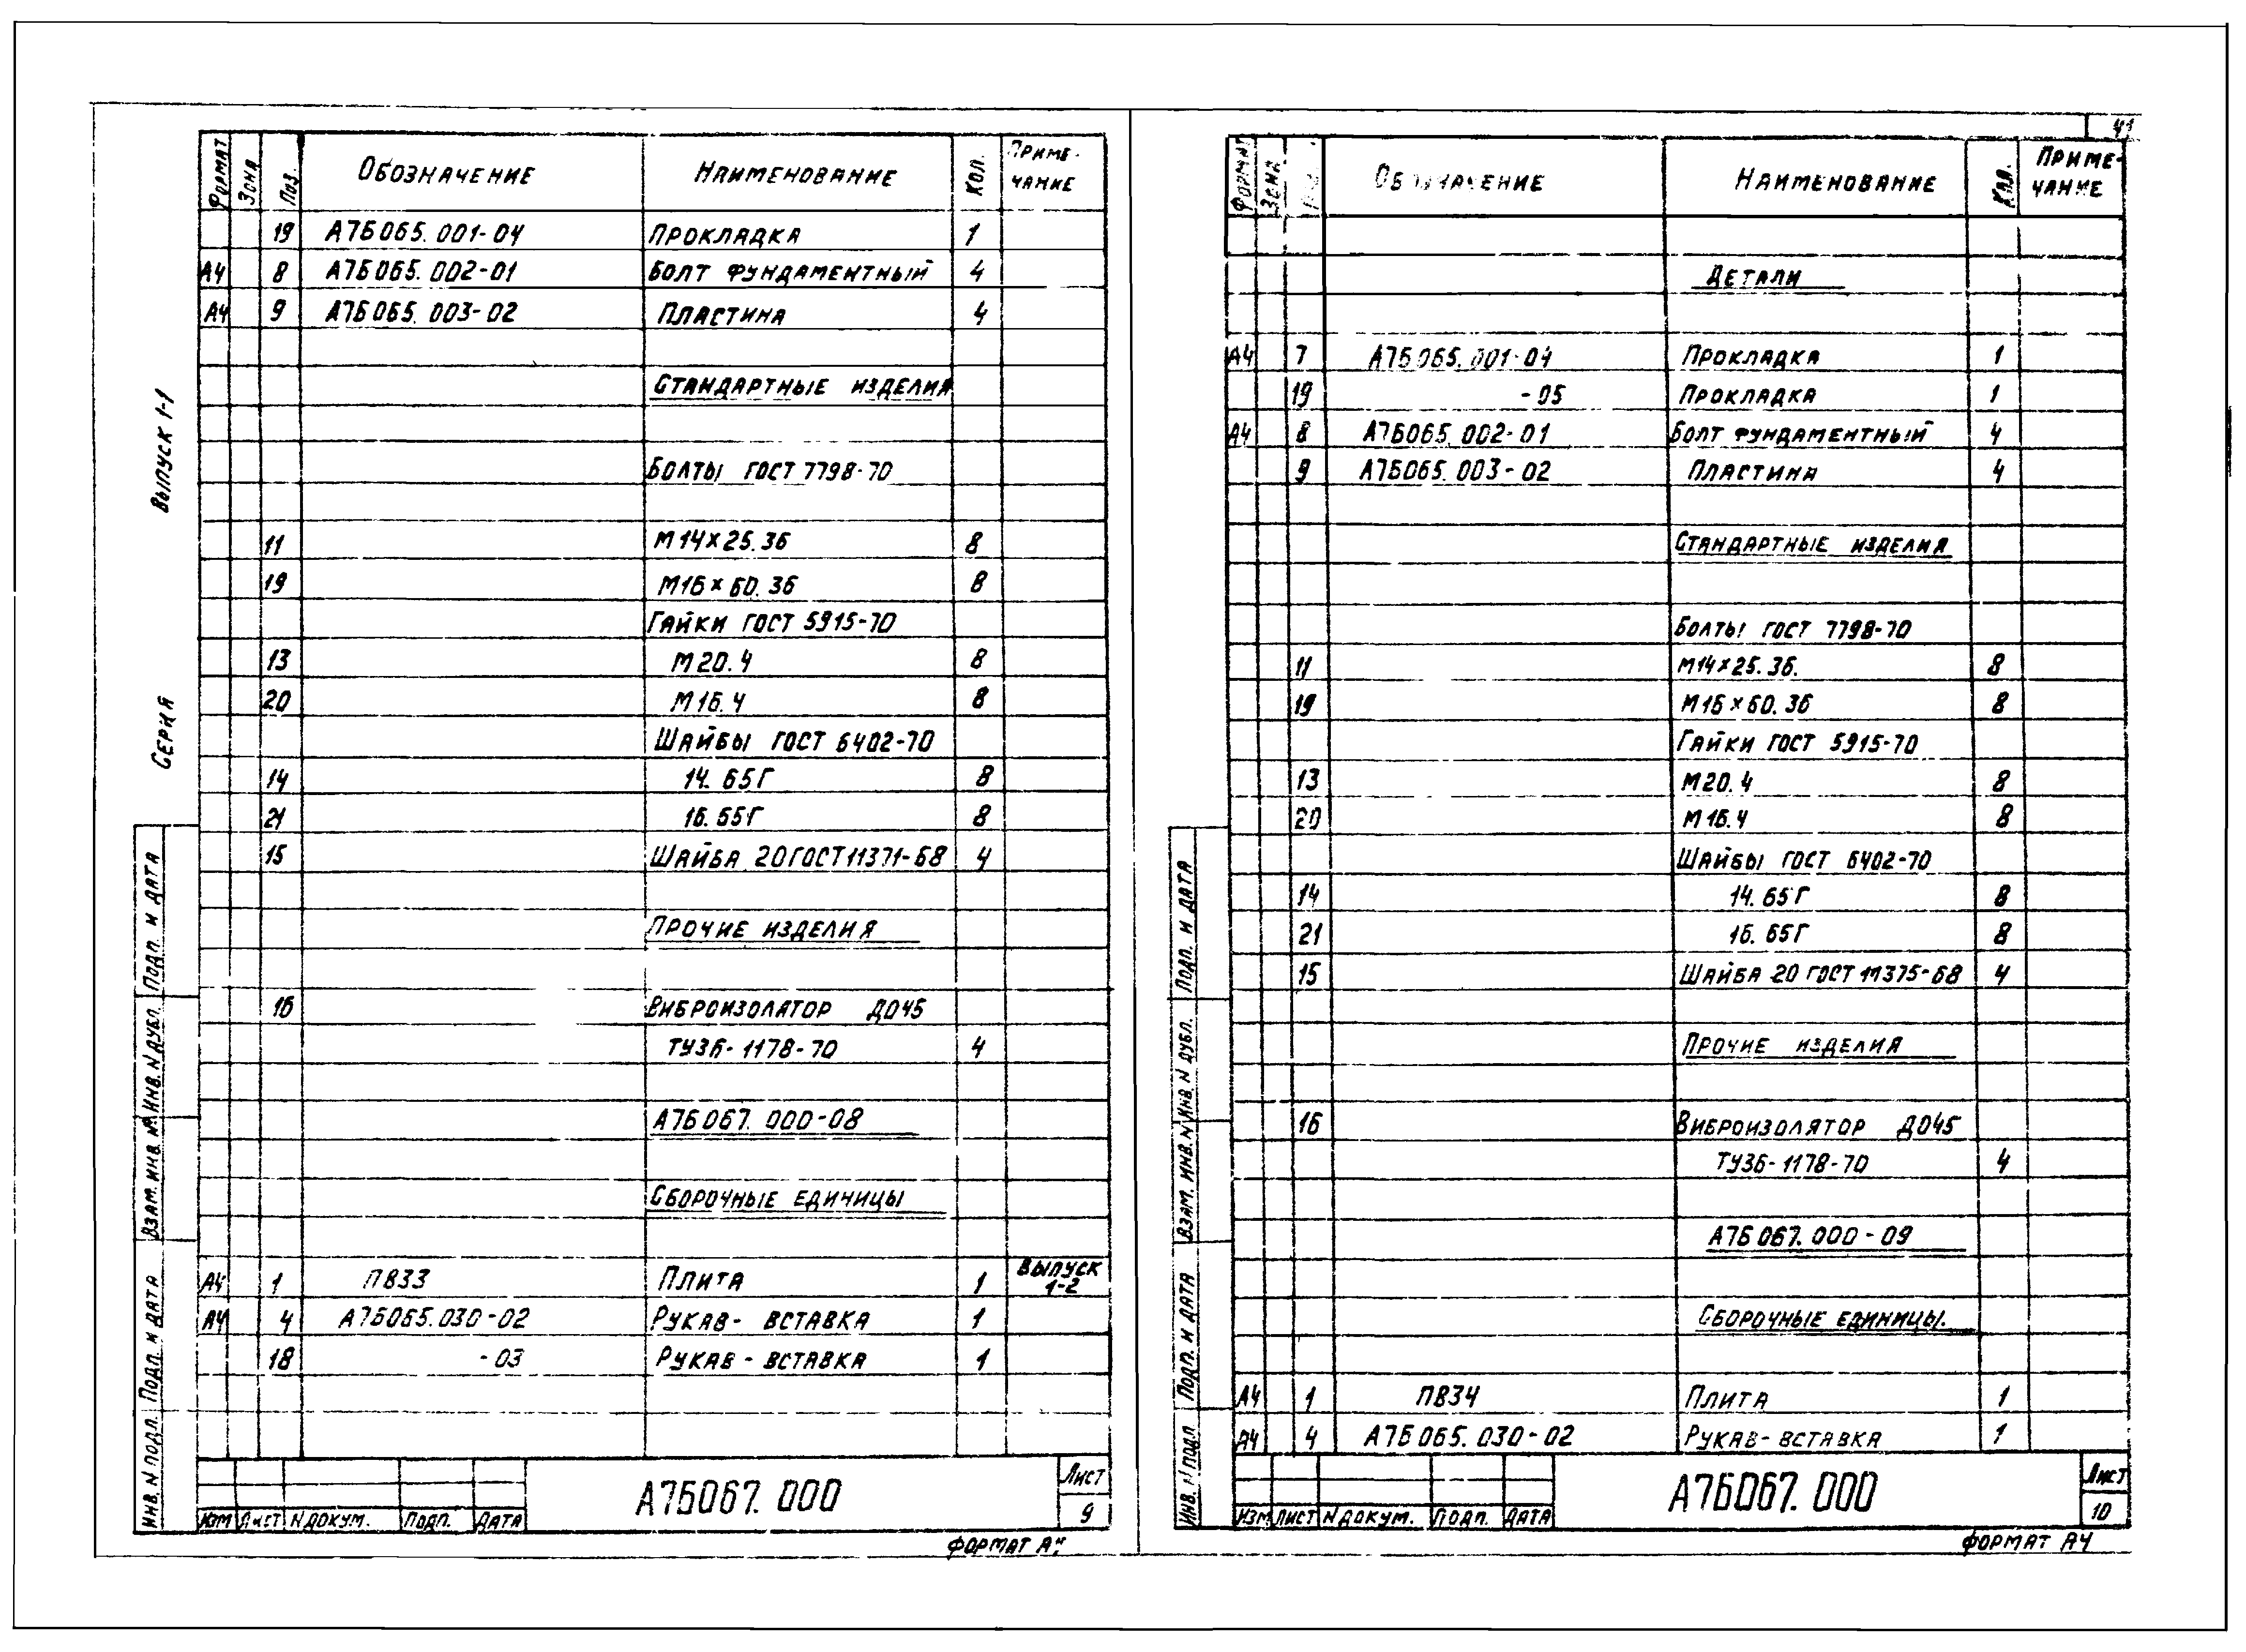 Выпуск 1-1
Серия
Формат Зона Поз. Обозначение Наименование Кол. Приме-
чание
19 А7Б065.001-04 Прокладка 1
А4 8 А7Б065.002-01 Болт фундаментный 4
А4 9 А7Б065.003-02 Пластина 4
Стандартные изделия
Болты ГОСТ 7798-70
11 М14×25.36 8
19 М16×60.36 8
Гайки ГОСТ 5915-70
13 М20.4 8
20 М16.4 8
Шайбы ГОСТ 6402-70
14 14.65Г 8
21 16.65Г 8
15 Шайба 20 ГОСТ 11371-68 4
Прочие изделия
16 Виброизолятор ДО45
ТУ36-1178-70 4
А7Б067.000-08
Сборочные единицы
А4 1 ПВ33 Плита 1 Выпуск
1-2
А4 4 А7Б065.030-02 Рукав-вставка 1
18 -03 Рукав-вставка 1
Инв. N подл. Подп. и дата Взам. инв. № Инв. N дубл. Подп. и дата
Изм Лист N докум. Подп. Дата
А7Б067.000
Лист
9
Формат А4
41
Формат Зона Обозначение Наименование Кол. Приме-
чание
Детали
А4 7 А7Б065.001-04 Прокладка 1
19 -05 Прокладка 1
А4 8 А7Б065.002-01 Болт фундаментный 4
9 А7Б065.003-02 Пластина 4
Стандартные изделия
Болты ГОСТ 7798-70
11 М14×25.36. 8
19 М16×60.36 8
Гайки ГОСТ 5915-70
13 М20.4 8
20 М16.4 8
Шайбы ГОСТ 6402-70
14 14.65Г 8
21 16.65Г 8
15 Шайба 20 ГОСТ 11375-68 4
Прочие изделия
16 Виброизолятор ДО45
ТУ36-1178-70 4
А7Б067.000-09
Сборочные единицы.
А4 1 ПВ34 Плита 1
А4 4 А7Б065.030-02 Рукав-вставка 1
Инв. N подл Подп. и дата Взам. инв. N Инв. N дубл. Подп. и дата
Изм Лист N докум. Подп. Дата
А7Б067.000
Лист
10
Формат А4